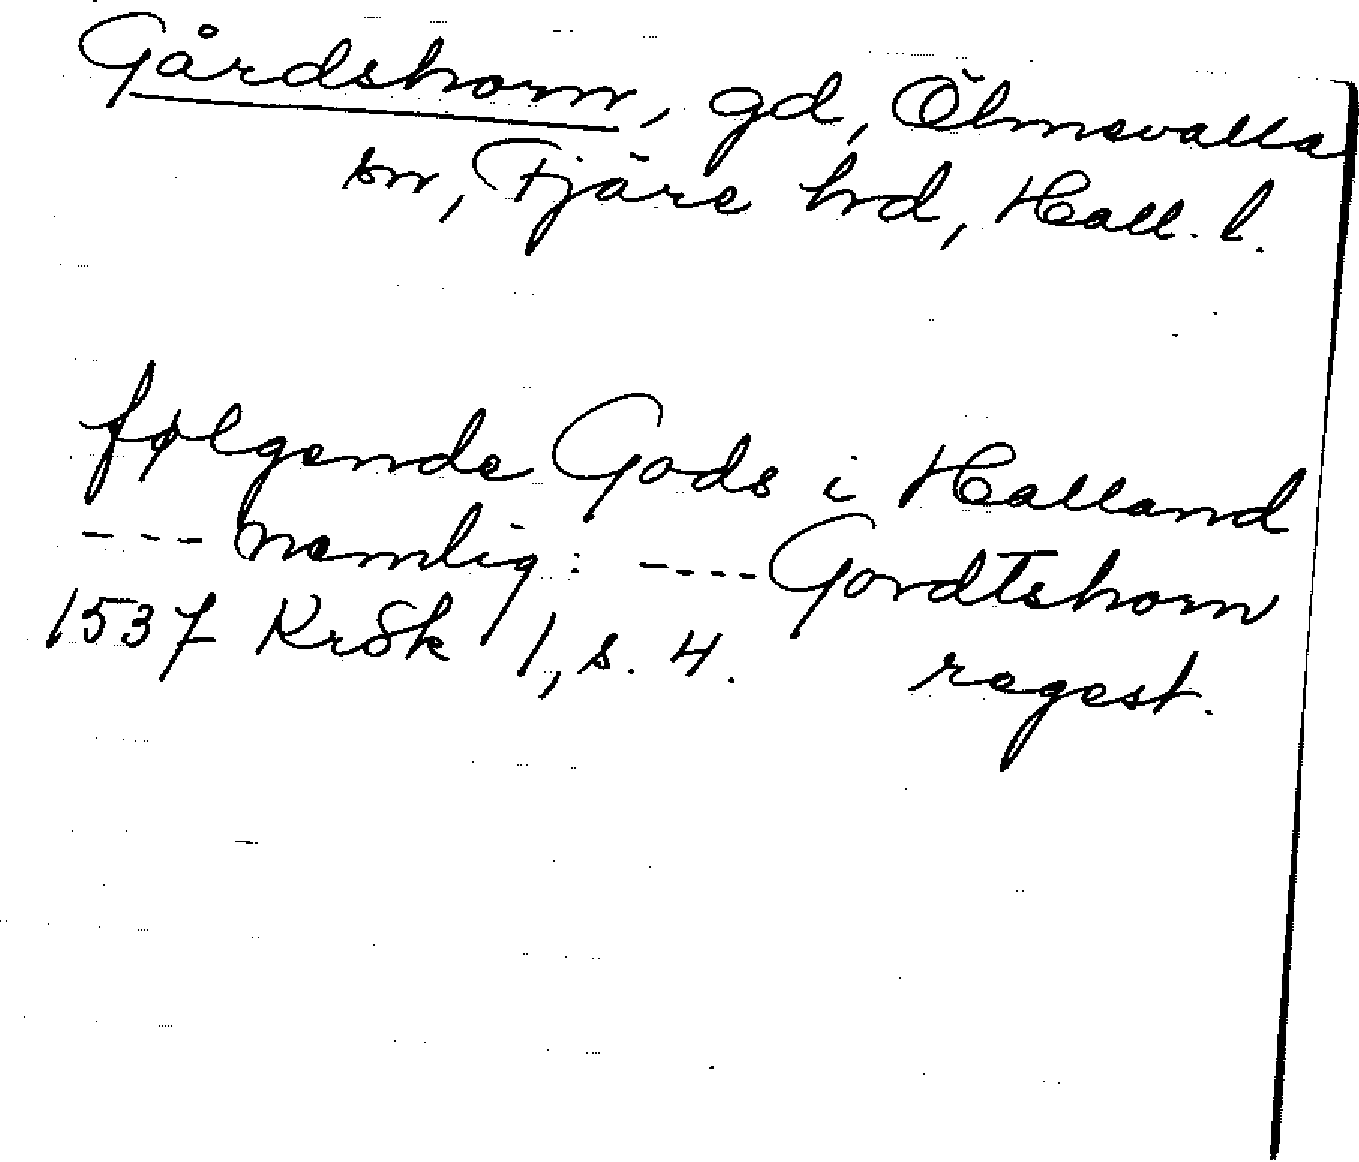 Gårdshorn, gd, Ölmevalla
sn, Fjäre hrd, Hall. l.
følgende Gods i Halland
--- nemlig: ---- Gordtshorn
1537 KrSk 1, s. 4. regest.